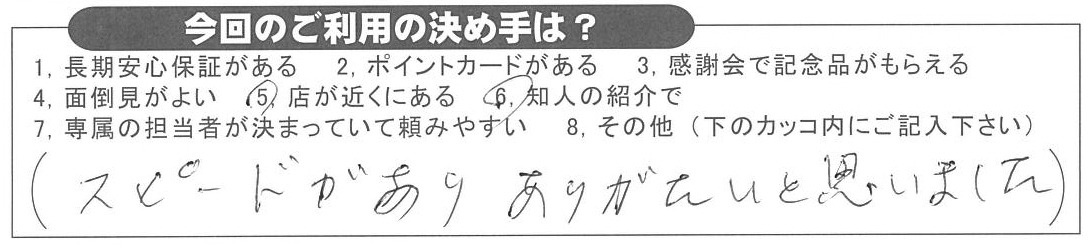 今回のご利用の決め手は？
1, 長期安心保証がある　2, ポイントカードがある　3, 感謝会で記念品がもらえる
4, 面倒見がよい　5, 店が近くにある　6, 知人の紹介で
7, 専属の担当者が決まっていて頼みやすい　8, その他（下のカッコ内にご記入下さい）
（スピードがあり ありがたいと思いました）